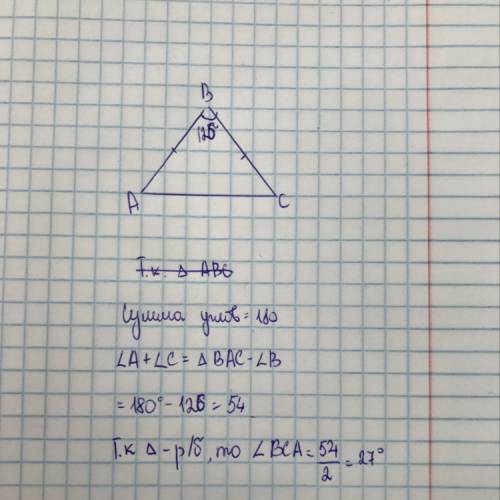 B
126°
A
C
Т.к. Δ ABC
Сумма углов = 180
∠A+∠C = ΔBAC-∠B
= 180° - 126 = 54
Т.к Δ - р/б, то ∠BCA = 54/2 = 27°